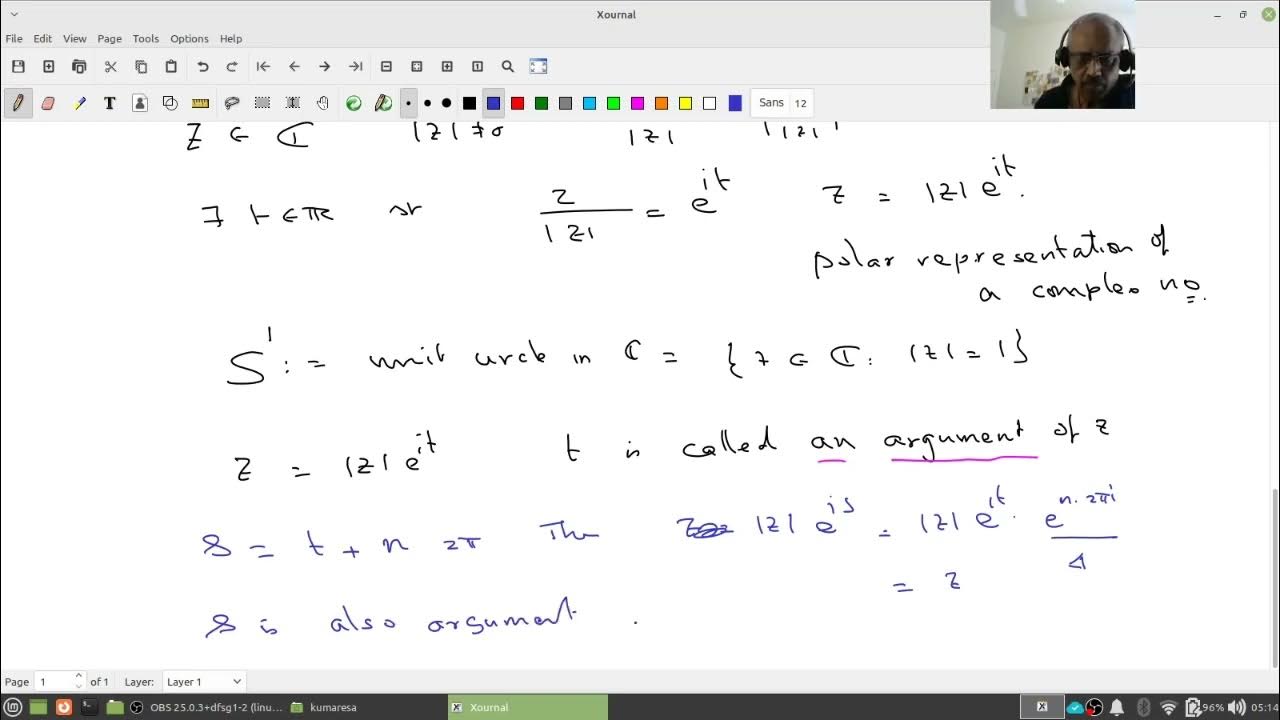 Xournal
File Edit View Page Tools Options Help
Sans 12
z ∈ ℂ |z| ≠ 0 |z| | |z| |
∃ t ∈ ℝ st z/|z| = e^{it} z = |z| e^{it}.
polar representation of
a complex no.
S^1 := unit circle in ℂ = {z ∈ ℂ: |z| = 1}
z = |z| e^{it} t is called an argument of z
s = t + n 2π Then |z| e^{is} = |z| e^{it} · e^{n·2πi}
1
= z
s is also argument.
Page 1 of 1 Layer: Layer 1
OBS 25.0.3+dfsg1-2 (linu... kumaresa Xournal 96% 05:14